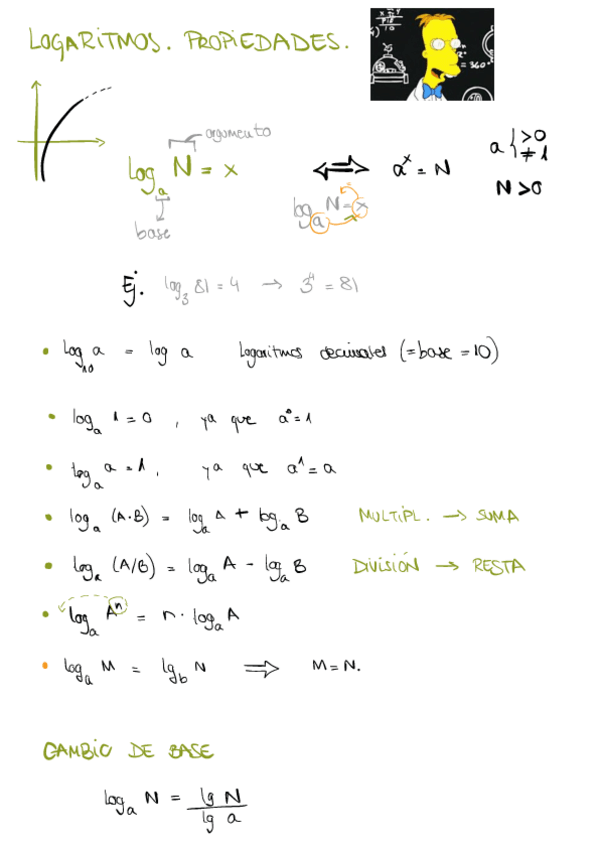 LOGARITMOS. PROPIEDADES.
argumento
logₐ N = x ⟺ aˣ = N
a { >0
≠ 1
N > 0
base
logₐ N = x
Ej. log₃ 81 = 4 → 3⁴ = 81
• log₁₀ a = log a Logaritmos decimales (=base = 10)
• logₐ 1 = 0 , ya que a⁰ = 1
• logₐ a = 1, ya que a¹ = a
• logₐ (A·B) = logₐ A + logₐ B MULTIPL. → SUMA
• logₐ (A/B) = logₐ A - logₐ B DIVISIÓN → RESTA
• logₐ Aⁿ = n · logₐ A
• logₐ M = lg_b N ⟹ M = N.
CAMBIO DE BASE
logₐ N = lg N / lg a
= 360°